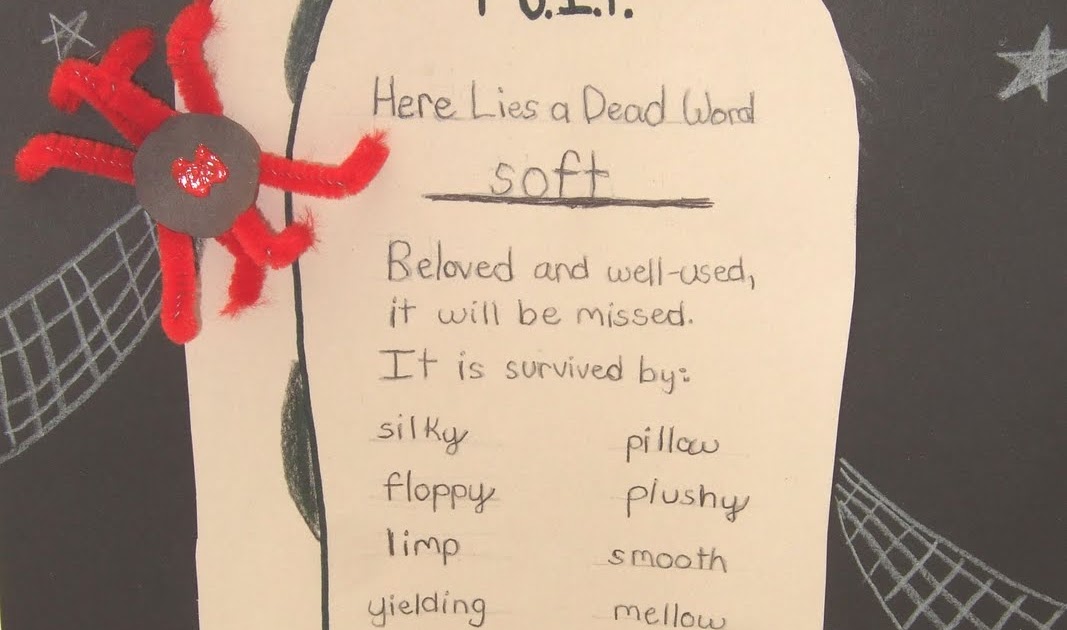 Here Lies a Dead Word
soft
Beloved and well-used,
it will be missed.
It is survived by:
silky pillow
floppy plushy
limp smooth
yielding mellow